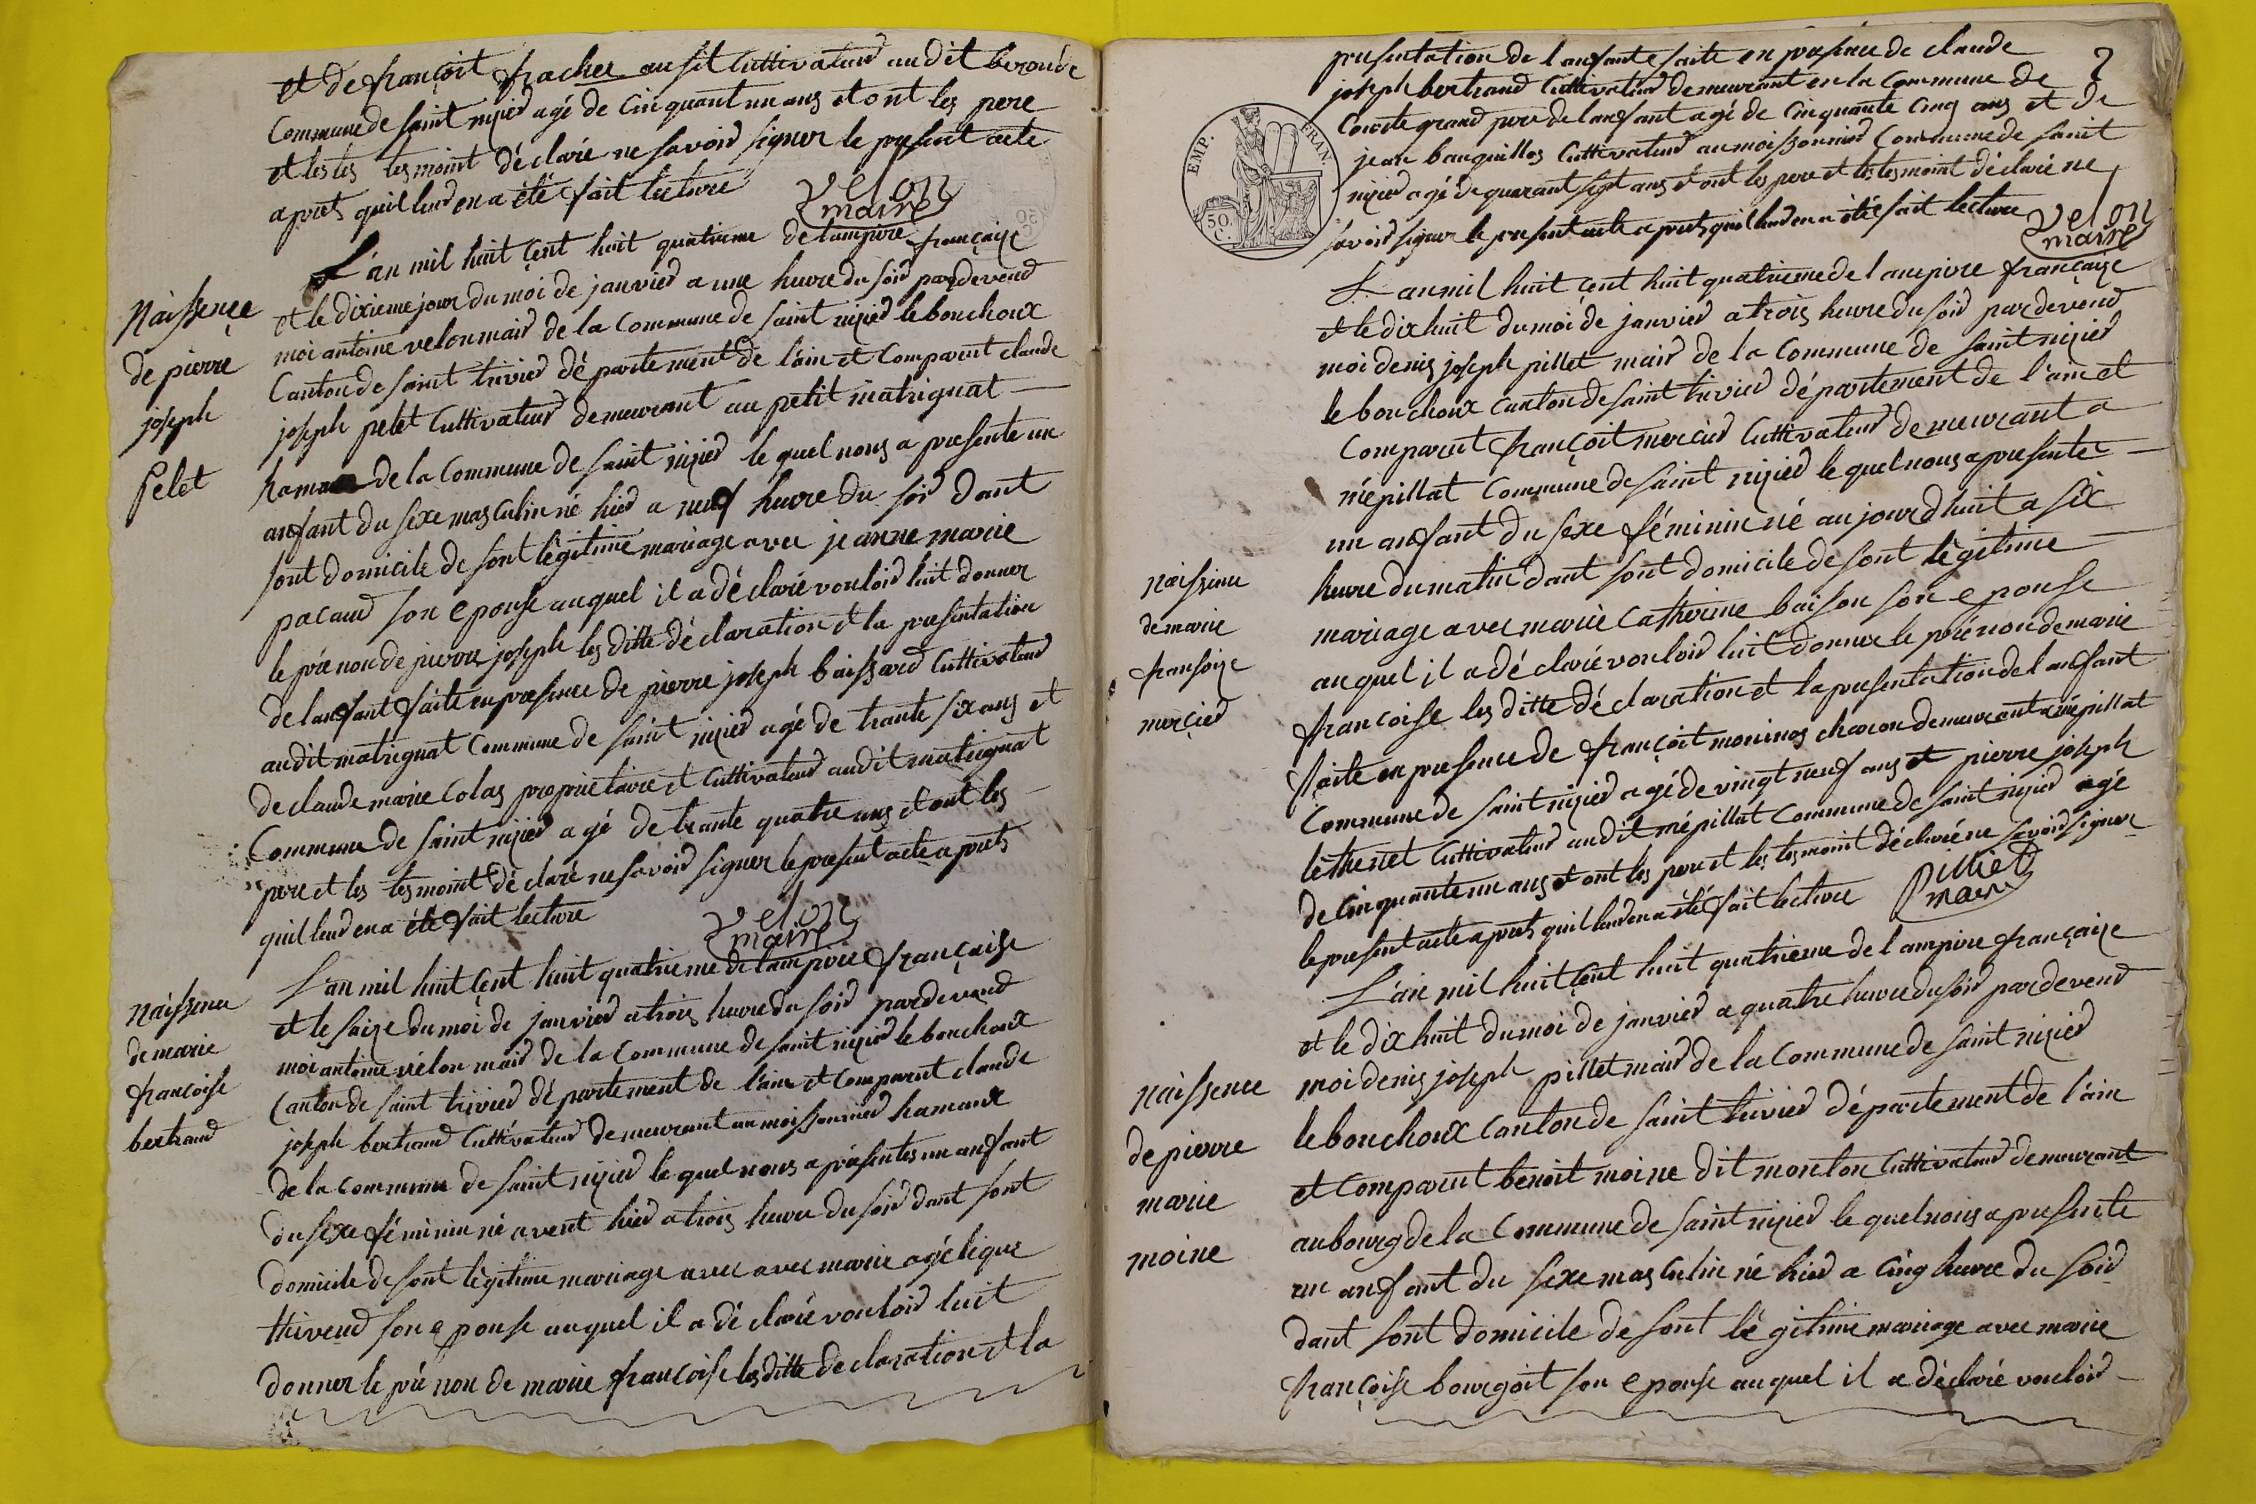 et de françoit fracher ausit Cuttivateur audit beroude
Commune de saint nizier agé de Cinquant un ans et ont les pere
et les tes tesmoint déclaré ne savoir signer le present acte
aprets quil leur en a été fait lecture
velon
maire
Naissence
de pierre
joseph
pelet
L'an mil huit çent huit quatrieme de lampire françaize
et le dixieme jour du moi de janvier a une heure du soir pardevend
moi antoine velon mair de la Commune de saint nizier le bouchoux
Canton de saint trivier département de l'ain et Comparent claude
joseph pelet Cuttivateur demeurant au petit matrignat
hamau de la Commune de saint nizier le quel nous a presente un
anfant du sexe masculin né hier a neuf heure du soir dant
sont domicile de sont lêgitime mariage avec jeanne marie
pacaud son epouse auquel il a déclaré vouloir luit donner
le prénon de pierre joseph les ditte déclaration et la presentation
de lanfant faite en presence de pierre joseph baissard Cuttivateur
audit matrignat Commune de saint nizier agé de trante six ans et
de claude marie Colas proprietaire et Cuttivateur audit matrignat
Commune de saint nizier agé de trante quatre ans et ont les
pere et les tesmoint déclaré ne savoir signer le present acte aprets
quil leur en a été fait lecture
velon
maire
Naissence
de marie
francoise
bertrand
L'an mil huit çent huit quatrieme de lampire française
et le saize du moi de janvier a trois heure du soir pardevend
moi antoine vélon mair de la Commune de saint nizier le bouchoux
Canton de saint trivier département de l'ain et Comparent claude
joseph bertrand Cuttivateur demeurant au moissonnier hamaux
de la Commune de saint nizier le quel nous a présentes un anfant
du sexe féminin né avent hier a trois heure du soir dant sont
domicile de sont lêgitime mariage avec avec marie agélique
thivend son epouse auquel il a déclaré vouloir luit
donner le prénon de marie françoise les ditte declaration et la
2
EMP. FRAN.
50.
C.
presentation de lanfante faite en présence de claude
joseph bertrand Cuttivateur demeurant en la Commune de
Courte grand pere de lanfant agé de Cinquante Cinq ans et de
jean banquillos Cuttivateur au moissonnier Commune de saint
nizier agé de quarant sept ans et ont les pere et les tesmoint déclaré ne
savoir signer le present acte aprets quil leur en a été fait lecture
velon
maire
Naissence
de marie
fransoize
merçier
L'an mil huit çent huit quatrieme de l'ampire françaize
et le dix huit du moi de janvier a trois heure du soir pardevend
moi denis joseph pillet mair de la Commune de saint nizier
le bouchoux Canton de saint trivier département de l'ain et
Comparent françoit mercier Cuttivateur demeurant a
mépillat Commune de saint nizier le quel nous a presente
un anfant du sexe féminin né aujourdhuit a six
heure du matin dant sont domicile de sont lêgitime
mariage avec marie Catherine baison son epouse
auquel il a déclaré vouloir luit donner le prénon de marie
françoise les ditte déclaration et la presentation de lanfant
faite en presence de françoit moninos charon demeurant a mépillat
Commune de saint nizier agé de vingt neuf ans et pierre joseph
léthenet Cuttivateur audit mépillat Commune de saint nizier agé
de Cinquante un ans et ont les pere et les tesmoint déclaré ne savoir signer
le present acte aprets quil leur en a été fait lecture
Pilliet
maire
Naissence
de pierre
marie
moine
L'an mil huit çent huit quatrieme de lampire françaize
et le dix huit du moi de janvier a quatre heure du soir pardevend
moi denis joseph pillet mair de la Commune de saint nizier
le bouchoux Canton de saint trivier département de l'ain
et Comparent benoit moine dit monton Cuttivateur demeurant
au bourg de la Commune de saint nizier le quel nous a presente
un anfant du sexe masculin né hier a Cinq heure du soir
dant sont domicile de sont légitime mariage avec marie
françoise bourgoit son epouse auquel il a déclaré vouloir